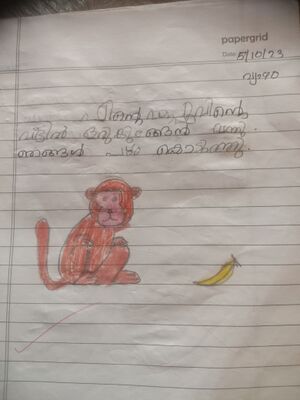 papergrid
Date: 5/10/23
വ്യാഴം
വീട്ടിൽ ഒരു കുരങ്ങൻ വന്നു.
ഞങ്ങൾ പഴം കൊടുത്തു.